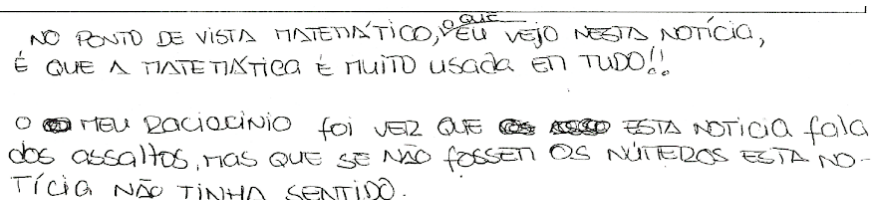 NO PONTO DE VISTA MATEMÁTICO, O QUE EU VEJO NESTA NOTÍCIA,
É QUE A MATEMÁTICA É MUITO USADA EM TUDO!!
O MEU RACIOCÍNIO foi VER QUE ESTA NOTICIA fala
dos assaltos, MAS QUE SE NÃO fOSSEM OS NÚMEROS ESTA NO-
TÍCIA NÃO TINHA SENTIDO.